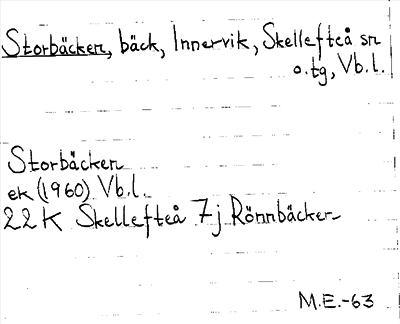 Storbäcken, bäck, Innervik, Skellefteå sn
o. tg, Vb. l.
Storbäcken
ek (1960) Vb. l.
22 K Skellefteå 7j Rönnbäcken
M.E.-63